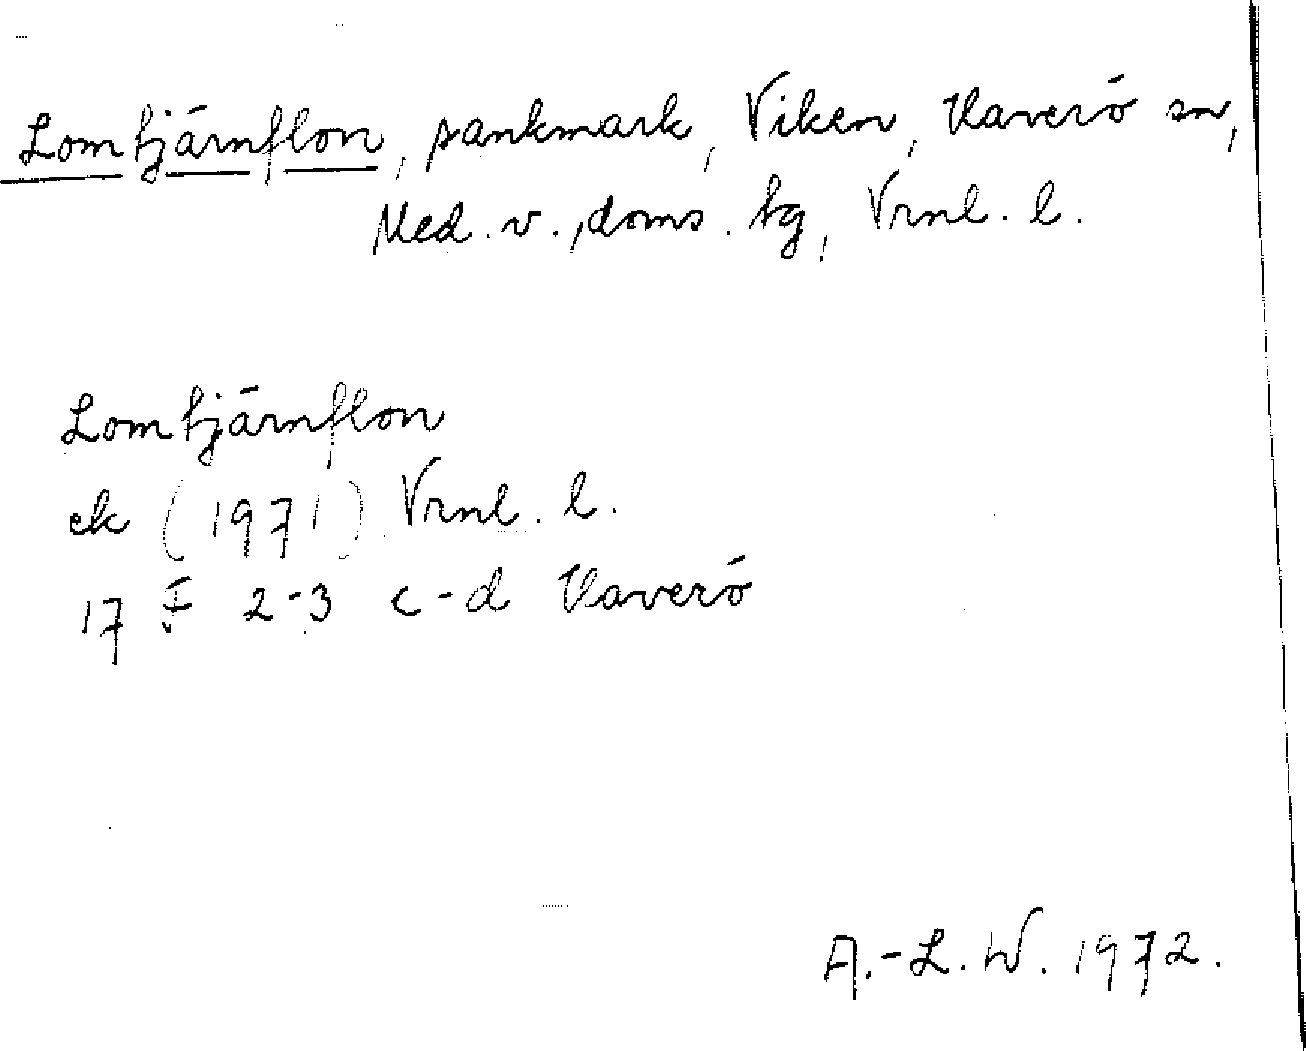 Lomtjärnflon, sankmark, Viken, Haverö sn,
Med. v., doms. tg, Vrnl. l.
Lomtjärnflon
ek (1971) Vrnl. l.
17 F 2-3 c-d Haverö
A.-L. W. 1972.